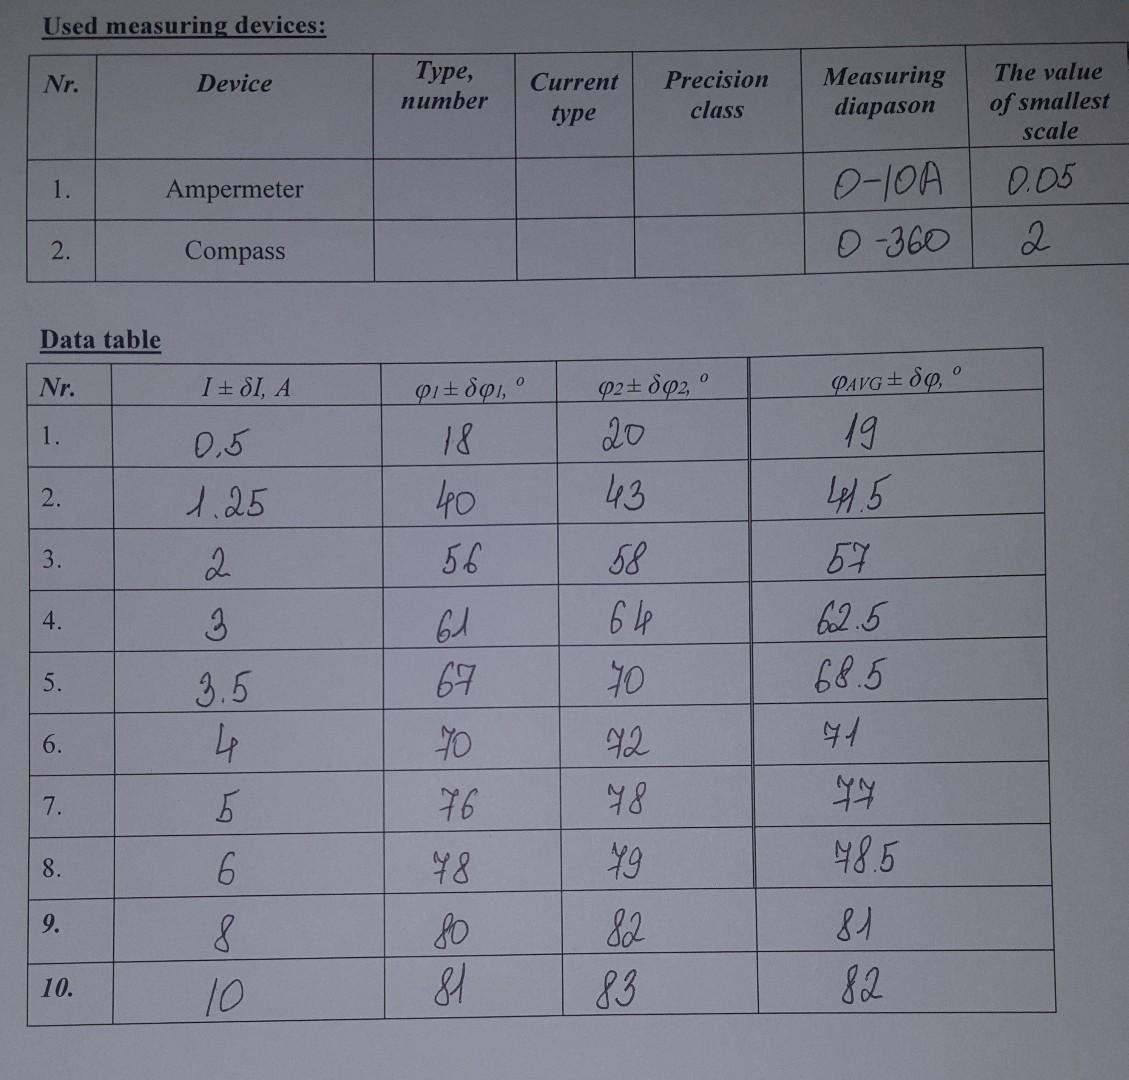 Used measuring devices:
Nr. Device Type, number Current type Precision class Measuring diapason The value of smallest scale
1. Ampermeter 0-10A 0.05
2. Compass 0-360 2
Data table
Nr. I ± δI, A φ1± δφ1, ° φ2± δφ2, ° φAVG ± δφ, °
1. 0,5 18 20 19
2. 1.25 40 43 41.5
3. 2 56 58 57
4. 3 61 64 62.5
5. 3.5 67 70 68.5
6. 4 70 72 71
7. 5 76 78 77
8. 6 78 79 78.5
9. 8 80 82 81
10. 10 81 83 82